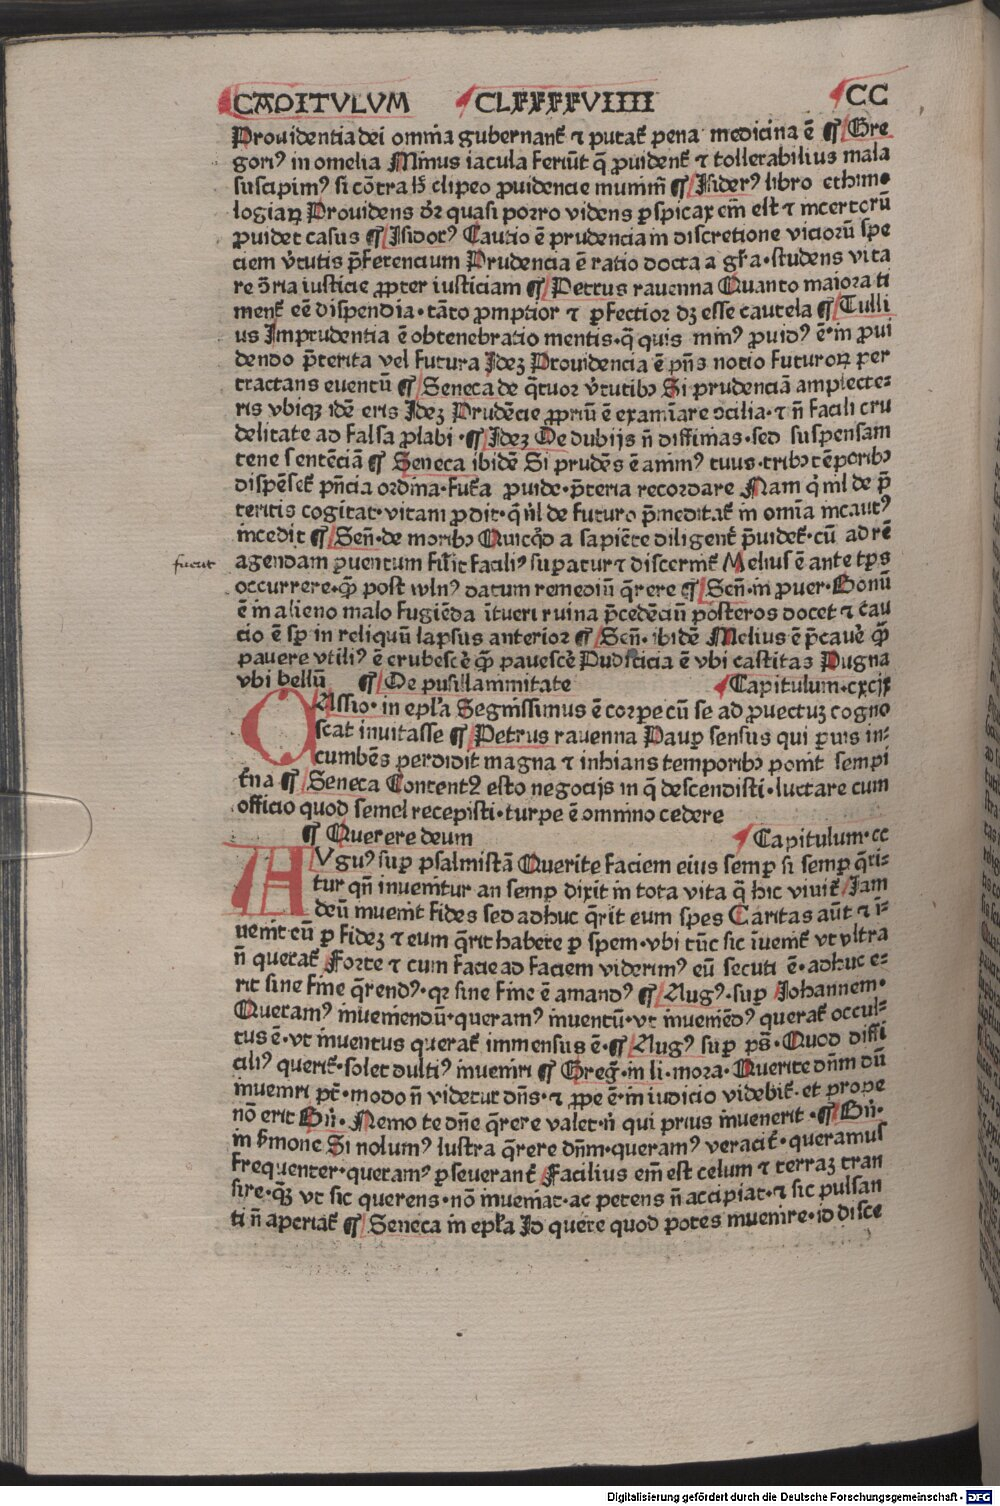 CAPITULUM CLXXXXVIIII CC
Prouidentia dei omnia gubernant᷑ ⁊ putat᷑ pena medicina ē ¶ Gre
gori⁹ in omelia Minus iacula feriūt q̄ ꝓuident᷑ ⁊ tollerabilius mala
suscipim⁹ si cōtra h̄ clipeo ꝓuidencie munim̄ ¶ Isider⁹ libro ethimo
logiaꝝ Prouidens dr̄ quasi porro videns ꝑspicax em̄ est ⁊ incertorū
ꝓuidet casus ¶ Isidor⁹ Cautio ē prudencia in discretione viciorū spe
ciem v̄tutis p̄ferencium Prudencia ē ratio docta a gr̄a · studens vita
re ōria iusticie ꝓpter iusticiam ¶ Petrus rauenna Quanto maiora ti
ment᷑ eē dispendia · tāto ꝓmptior ⁊ ꝑfectior dꝫ esse cautela ¶ Tulli
us Imprudentia ē obtenebratio mentis · q̄ quis min⁹ ꝓuid⁹ ē · in ꝓui
dendo p̄terita vel futura Ideꝫ Prouidencia ē pn̄s notio futuroꝝ per
tractans euentū ¶ Seneca de q̄tuor v̄tutibꝫ Si prudenciā amplecte⸗
ris vbiqꝫ idē eris Ideꝫ Prudēcie ꝓpriū ē examinare ↄcilia · ⁊ n̄ facili cru
delitate ad falsa ꝓlabi · ¶ Ideꝫ De dubijs n̄ diffinias · sed suspensam
tene sentēciā ¶ Seneca ibidē Si prudēs ē anim⁹ tuus · tribꝫ tēporibꝫ
dispēset᷑ pn̄cia ordina · fut᷑a ꝓuide · p̄teria recordare Nam q̇ nil de p̄
teritis cogitat · vitam ꝓdit · q̇ nil de futuro p̄meditat᷑ in om̄ia incaut⁹
incedit ¶ Sen̄ · de moribꝫ Quicq̇d a sapiēte diligent᷑ p̄uidet᷑ · cū ad rē
fuerit
agendam ꝑuentum fu͛it facili⁹ suꝑatur ⁊ discernit᷑ Melius ē ante tp̄s
occurrere · q̄ꝫ post wln⁹ datum remediū q̄rere ¶ Sen̄ · in ꝓuer · Bonū
ē in alieno malo fugiēda ītueri ruina p̄cedēciū posteros docet ⁊ cau
cio ē sꝑ in reliquū lapsus anterior ¶ Sen̄ · ibidē Melius ē p̄caue᷑ q̄ꝫ
pauere vtili⁹ ē erubesce᷑ q̄ꝫ pauesce᷑ Pudicicia ē vbi castitas Pugna
vbi bellū ¶ De pusillanimitate Capitulum · cxcix
CAssio · in epl̄a Segnissimus ē corpe cū se ad ꝓuectuꝫ cogno
scat inuitasse ¶ Petrus rauenna Pauꝑ sensus qui ꝑuis in⸗
cumbēs perdidit magna ⁊ inhians temporibꝫ ponit sempi
t᷑na ¶ Seneca Content⁹ esto negocijs in q̄ descendisti · luctare cum
officio quod semel recepisti · turpe ē omnino cedere
¶ Querere deum Capitulum · cc
AVgu⁹ suꝑ psalmistā Querite faciem eius semꝑ si semꝑ q̄ri⸗
tur qn̄ inuenitur an semꝑ dixit in tota vita q̄ hic viuit᷑ Iam
deū inuenit fides sed adhuc q̄rit eum spes Caritas aūt ⁊ ī⸗
uenit eū ꝑ fideꝫ ⁊ eum q̄rit habere ꝑ spem · vbi tūc sic īuenit᷑ vt vltra
n̄ querat᷑ Forte ⁊ cum facie ad faciem viderim⁹ eū secuti ē · adhuc e⸗
rit sine fine q̄rend⁹ · qꝛ sine fine ē amand⁹ ¶ Aug⁹ · suꝑ Iohannem ·
Queram⁹ inueniendū · queram⁹ inuentū · vt inueniēd⁹ querat᷑ occul⸗
tus ē · vt inuentus querat᷑ immensus ē · ¶ Aug⁹ suꝑ ps̄ · Quod diffi
cili⁹ querit᷑ · solet dulti⁹ inueniri ¶ Greḡ · in li · mora · Querite dn̄m dū
inueniri pt̄ · modo n̄ videtur dn̄s · ⁊ ꝓpe ē · in iudicio videbit᷑ · et prope
nō erit Bn̄ · Nemo te dn̄e q̄rere valet · ni qui prius inuenerit · ¶ Bn̄ ·
in s̄mone Si nolum⁹ lustra q̄rere dn̄m · queram⁹ veracit᷑ · queramus
frequenter · queram⁹ ꝑseuerant᷑ Facilius em̄ est celum ⁊ terraꝫ tran
sire · q̄ꝫ vt sic querens · nō inueniat · ac petens n̄ accipiat · ⁊ sic pulsan
ti n̄ aperiat᷑ ¶ Seneca in epl̄a Id quere quod potes inuenire · id disce
Digitalisierung gefördert durch die Deutsche Forschungsgemeinschaft - DFG